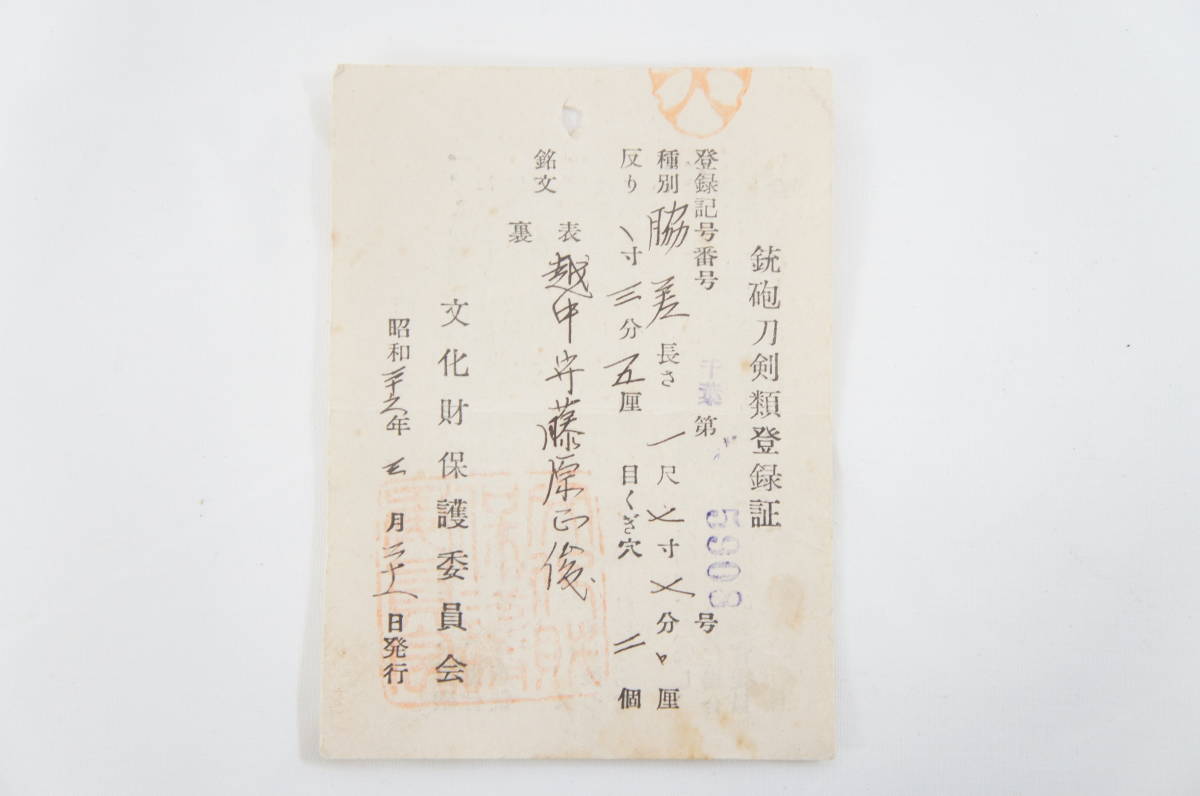 銃砲刀剣類登録証
登録記号番号 千葉 第 5903 号
種別 脇差 長さ 一尺 七寸 七分 厘
反り 寸 三分 五厘 目くぎ穴 二個
銘文
表 越中守藤原正俊
裏
文化財保護委員会
昭和 年 月 日発行